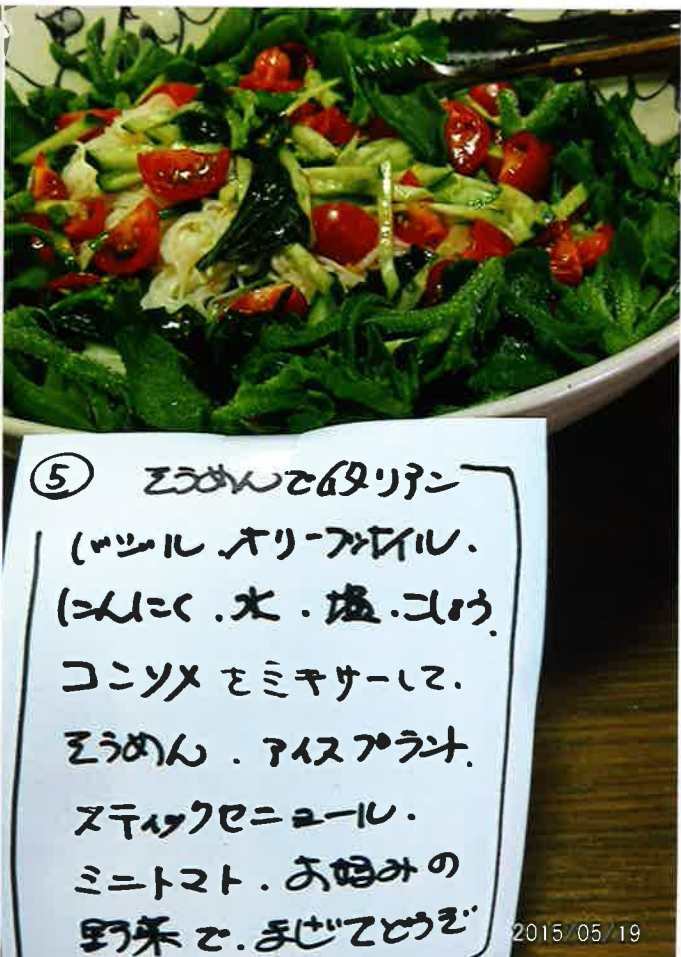 ⑤ そうめんでイタリアン
バジル、オリーブオイル、
にんにく、水、塩、こしょう、
コンソメをミキサーして、
そうめん、アイスプラント、
スティックセニョール、
ミニトマト、お好みの
野菜で、まぜてどうぞ
2015/05/19